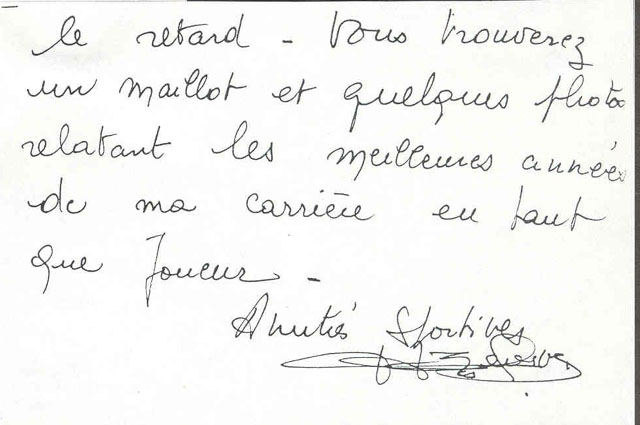 le retard - Vous trouverez
un maillot et quelques photos
relatant les meilleures années
de ma carrière en tant
que Joueur -
Amitiés Sportives